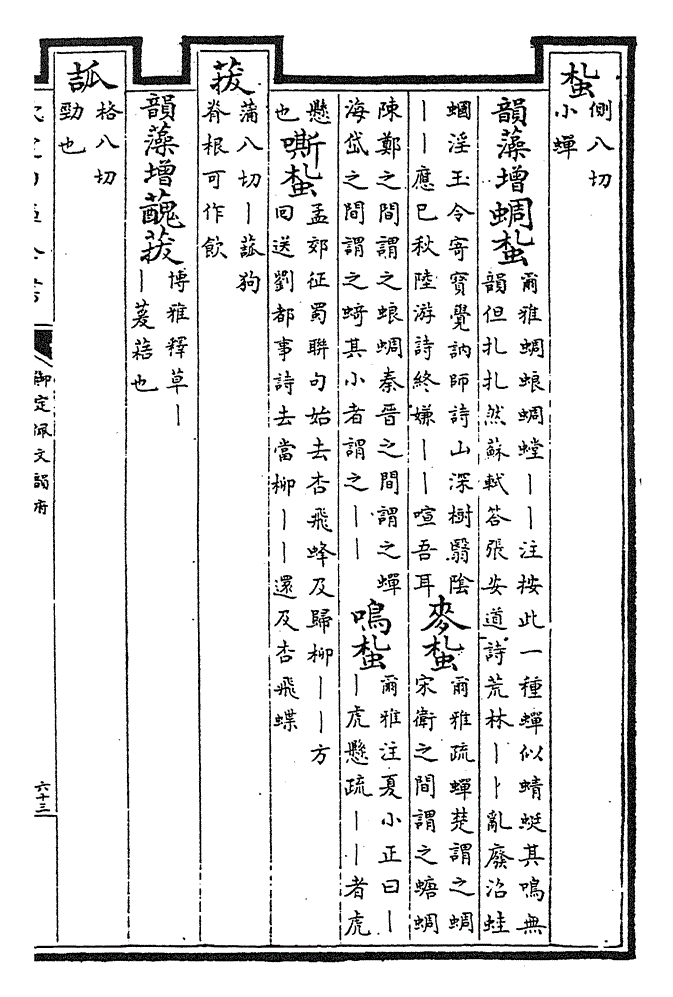 蚻
側八切
小蟬
韻藻增蜩蚻
爾雅蜩蜋蜩螗丨丨注按此一種蟬似蜻蜓其鳴無
韻但扎扎然蘇軾答張安道詩荒林丨丨亂廢沼蛙
蟈淫玉令寄寳覺訥師詩山深樹翳陰
丨丨應已秋陸游詩終嫌丨丨喧吾耳
麥蚻
爾雅疏蟬楚謂之蜩
宋衛之間謂之螗蜩
陳鄭之間謂之蜋蜩秦晉之間謂之蟬
海岱之間謂之䗁其小者謂之丨丨
鳴蚻
爾雅注夏小正曰丨
丨虎懸疏丨丨者虎
懸
也
嘶蚻
孟郊征蜀聯句始去杏飛蜂及歸柳丨丨方
回送劉都事詩去當柳丨丨還及杏飛蝶
菝
蒲八切丨菰狗
脊根可作飲
韻藻增菝
博雅釋草丨
丨菱也
格八切
勁也
御定佩文韻府
六十三